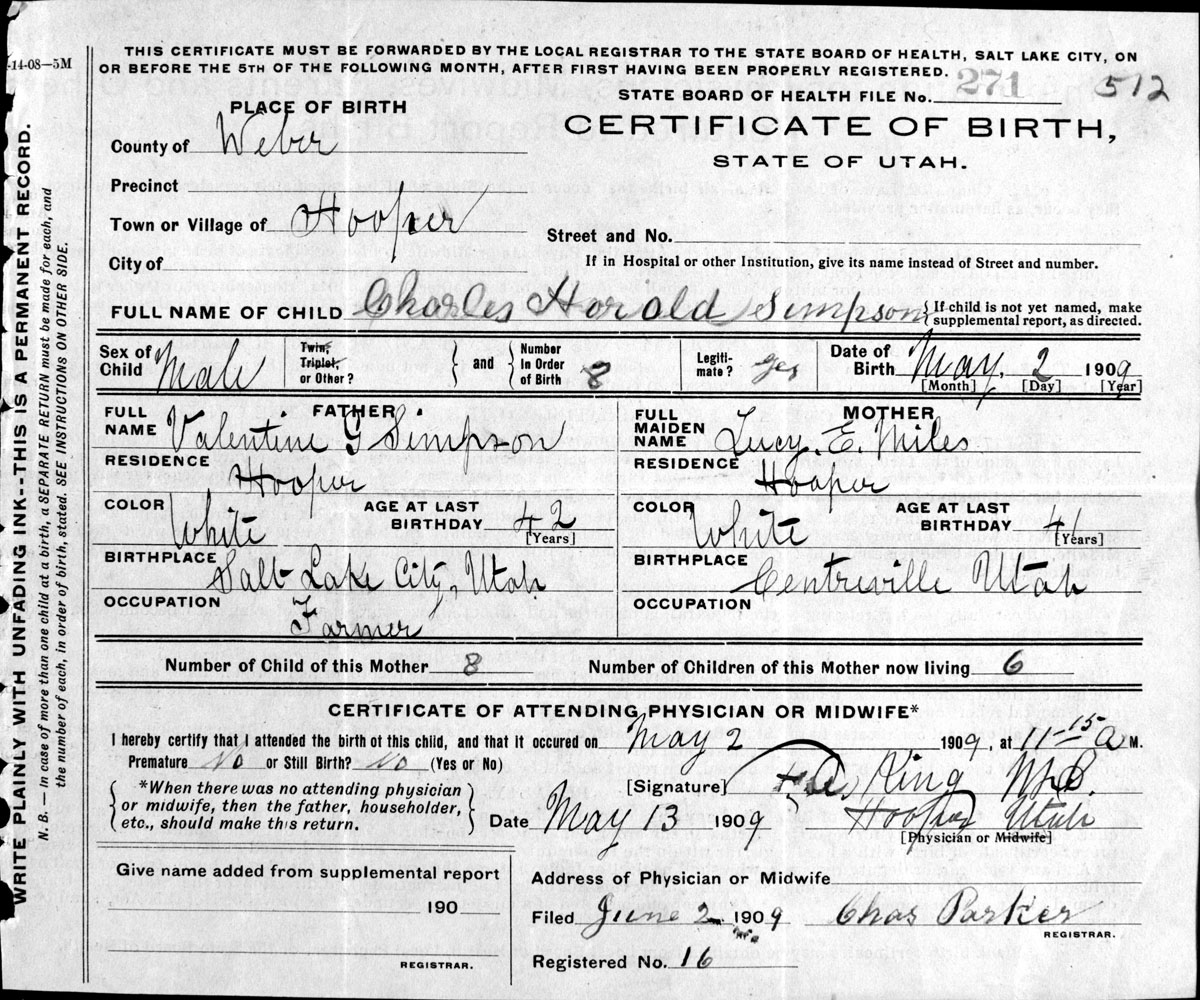 -14-08—5M
THIS CERTIFICATE MUST BE FORWARDED BY THE LOCAL REGISTRAR TO THE STATE BOARD OF HEALTH, SALT LAKE CITY, ON
OR BEFORE THE 5TH OF THE FOLLOWING MONTH, AFTER FIRST HAVING BEEN PROPERLY REGISTERED.
STATE BOARD OF HEALTH FILE No. 271 512
PLACE OF BIRTH
CERTIFICATE OF BIRTH,
STATE OF UTAH.
County of Weber
Precinct
Town or Village of Hooper
Street and No.
City of
If in Hospital or other Institution, give its name instead of Street and number.
FULL NAME OF CHILD Charles Horald Simpson { If child is not yet named, make
supplemental report, as directed.
Sex of Child Male Twin, Triplet, or Other? } and { Number In Order of Birth 8 Legiti-mate? yes Date of Birth May. 2 1909
[Month] [Day] [Year]
FATHER
FULL NAME Valentine G Simpson
RESIDENCE
Hooper
COLOR White AGE AT LAST BIRTHDAY 42
[Years]
BIRTHPLACE
Salt Lake City, Utah
OCCUPATION
Farmer
MOTHER
FULL MAIDEN NAME Lucy. E. Miles
RESIDENCE
Hooper
COLOR White AGE AT LAST BIRTHDAY 41
[Years]
BIRTHPLACE
Centreville Utah
OCCUPATION
Number of Child of this Mother 8 Number of Children of this Mother now living 6
CERTIFICATE OF ATTENDING PHYSICIAN OR MIDWIFE*
I hereby certify that I attended the birth of this child, and that it occured on May 2 1909, at 11-15 A M.
Premature No or Still Birth? No (Yes or No)
[Signature] King M.D.
{ *When there was no attending physician
or midwife, then the father, householder,
etc., should make this return. }
Date May 3 1909 Hooper Utah
[Physician or Midwife]
Give name added from supplemental report
190
REGISTRAR.
Address of Physician or Midwife
Filed June 2 1909 Chas Parker
REGISTRAR.
Registered No. 16
WRITE PLAINLY WITH UNFADING INK--THIS IS A PERMANENT RECORD.
N. B. — In case of more than one child at a birth, a SEPARATE RETURN must be made for each, and
the number of each, in order of birth, stated. SEE INSTRUCTIONS ON OTHER SIDE.